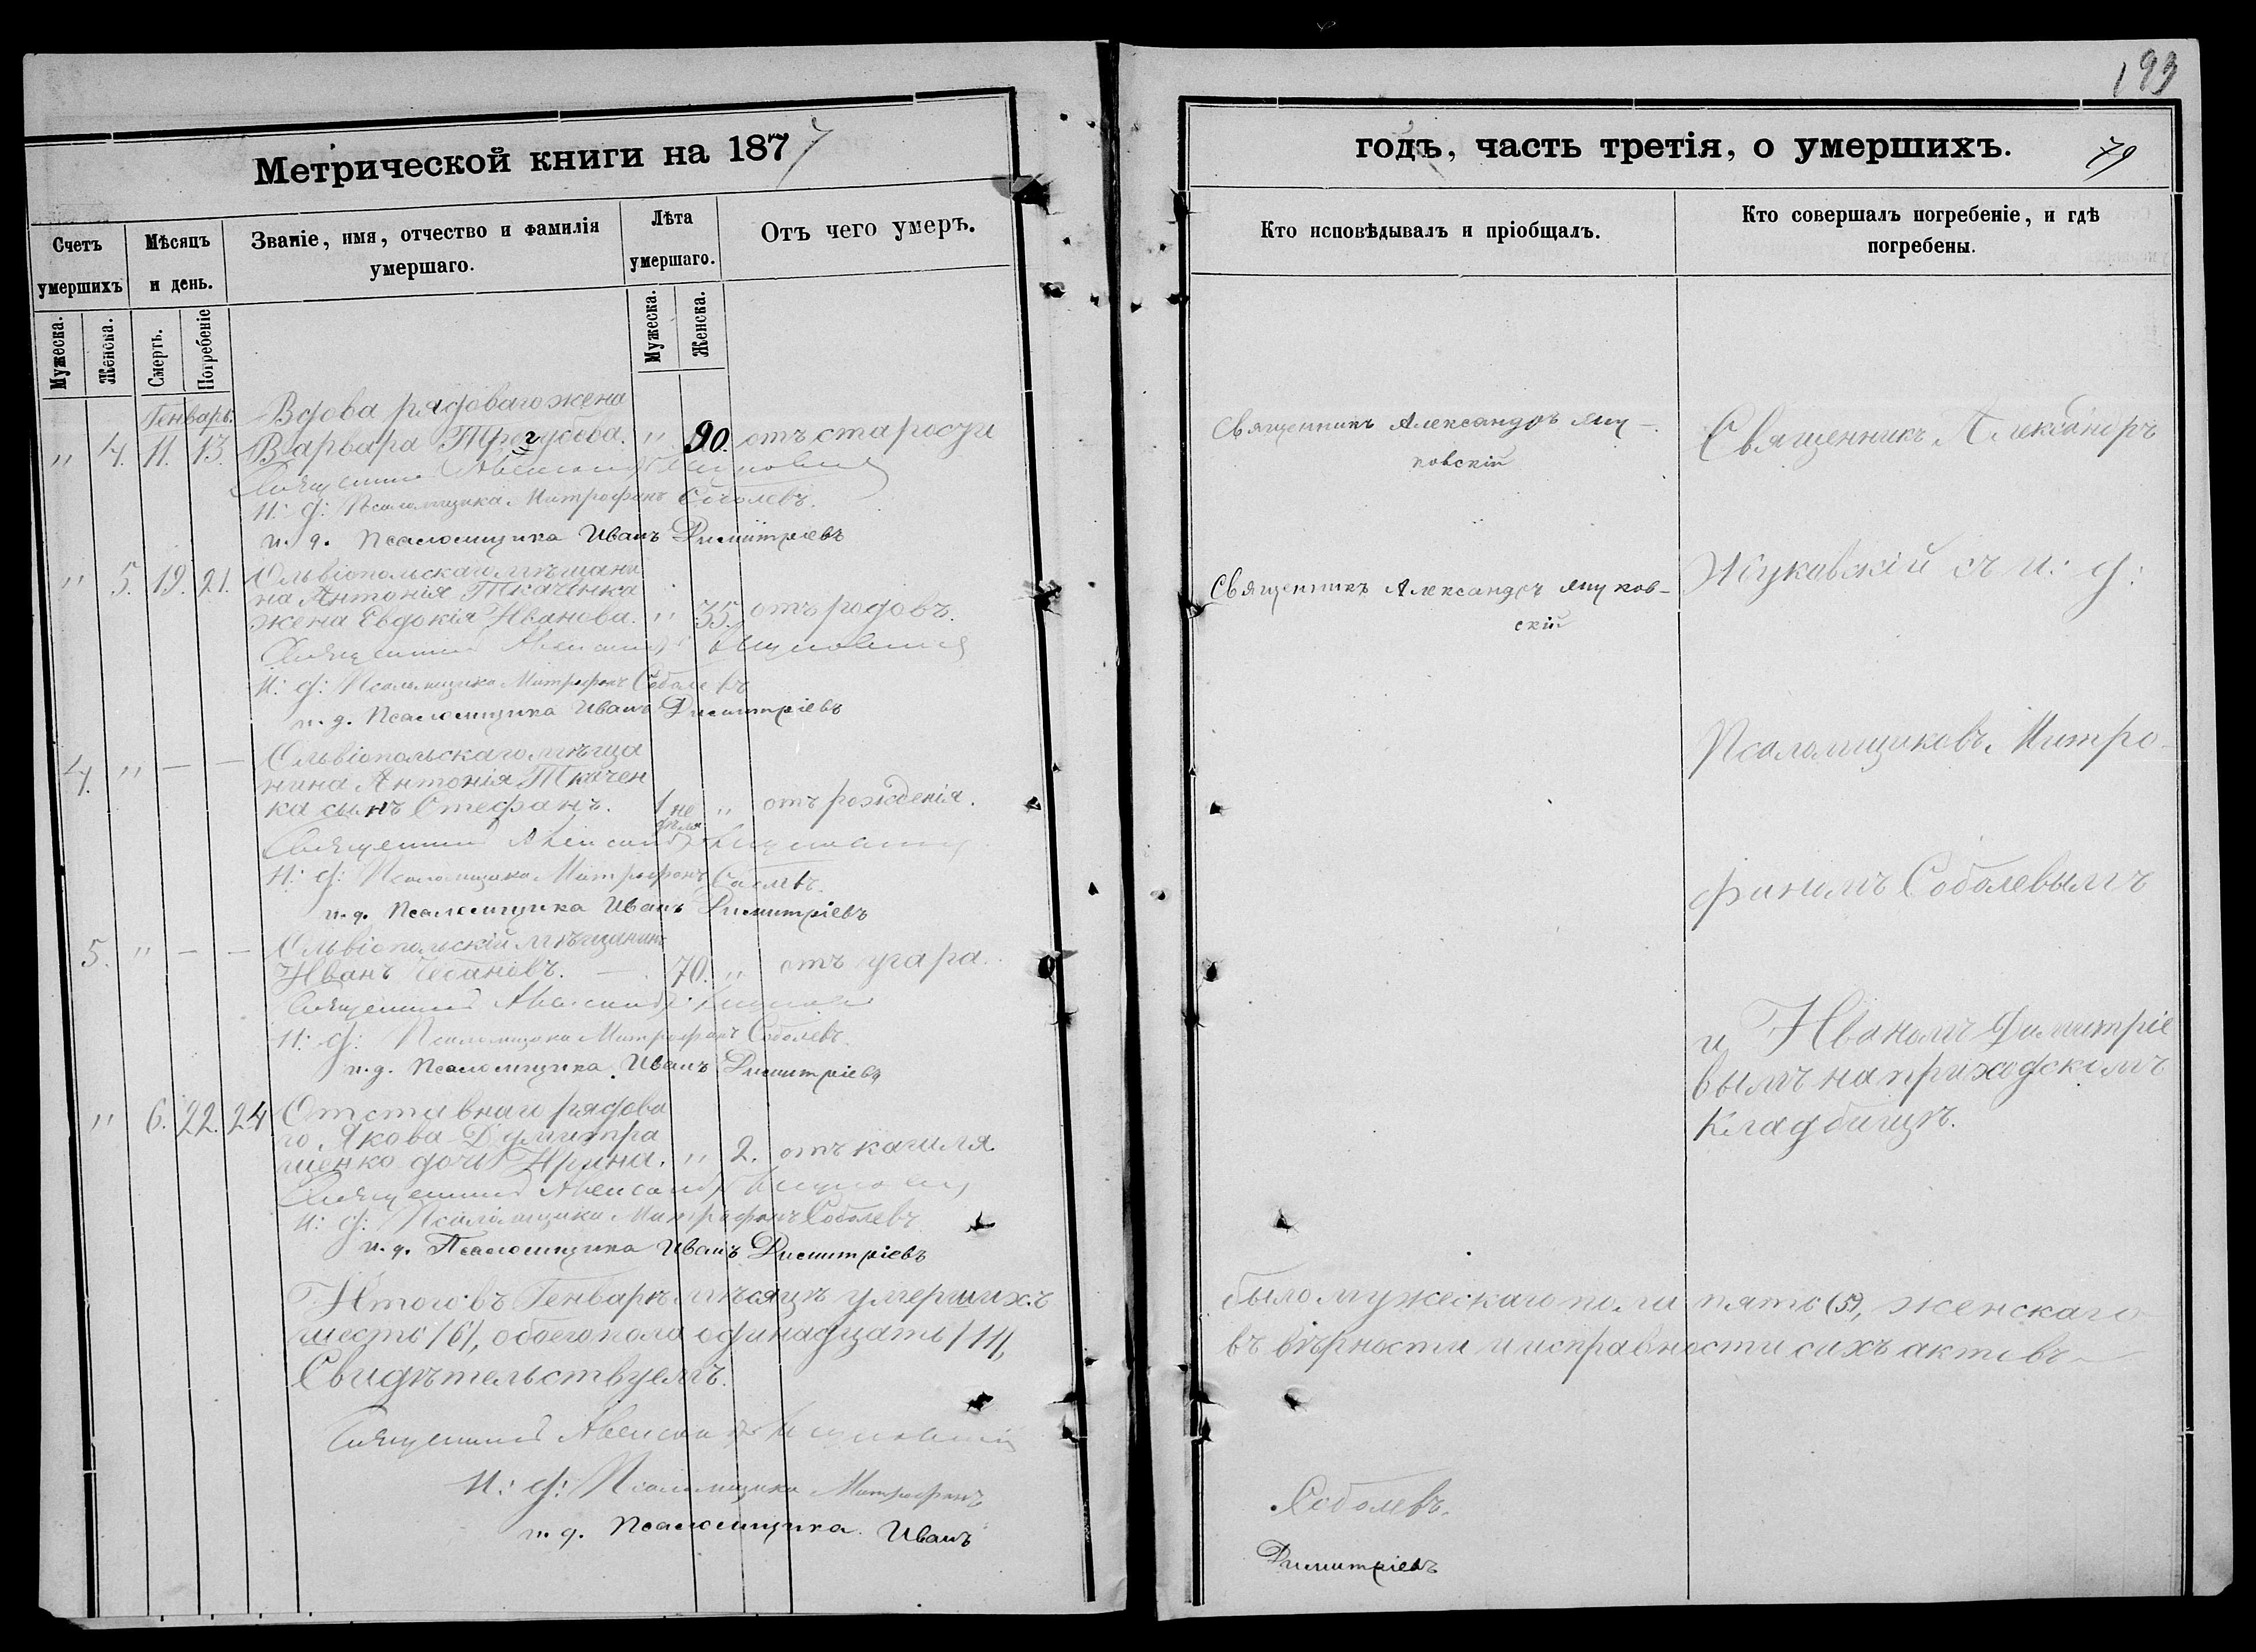 193
Метрической книги на 1877
годъ, часть третія, о умершихъ.
79
Счетъ умершихъ
Мѣсяцъ и день.
Званіе, имя, отчество и фамилія умершаго.
Лѣта умершаго.
Отъ чего умеръ.
Кто исповѣдывалъ и пріобщалъ.
Кто совершалъ погребеніе, и гдѣ погребены.
Мужеска.
Женска.
Смерть.
Погребеніе
Мужеска.
Женска.
Генварь.
Вдова рядоваго жена
" 4. 11. 13. Варвара " 90. отъ старости
Священникъ Александръ
И: д: Псаломщика Митрофанъ Соболевъ.
и. д. Псаломщика Иванъ Димитріевъ
Ольвіопольскаго мѣщани
" 5. 19. 21. на Антонія Ткаченка
жена Евдокія Иванова. " 35. отъ родовъ.
Священникъ Александръ
И: д: Псаломщика Митрофанъ Соболевъ
и. д. Псаломщика Иванъ Димитріевъ
Ольвіопольскаго мѣща
4. " — — нина Антонія Ткачен
ка сынъ Стефанъ. 1 не дѣля " отъ рожденія.
Священникъ Александръ
И: д: Псаломщика Митрофанъ Соболевъ.
и. д. Псаломщика Иванъ Димитріевъ
5. " — — Ольвіопольскій мѣщанинъ
Иванъ Чебаневъ. — 70. " отъ угара.
Священникъ Александръ
И: д: Псаломщика Митрофанъ Соболевъ.
и. д. Псаломщика Иванъ Димитріевъ
" 6. 22. 24 Отставнаго рядова
го Якова Думитра
шенко дочь Ирина. " 2. отъ кашля.
Священникъ Александръ
И: д: Псаломщика Митрофанъ Соболевъ
и. д. Псаломщика Иванъ Димитріевъ
Итого въ Генварѣ мѣсяцѣ умершихъ
шесть /6/, обоего пола одинадцать /11/,
Свидѣтельствуемъ.
Священникъ Александръ
И: д: Псаломщика Митрофанъ
и. д. Псаломщика Иванъ
Священникъ Александръ Яну-
ковскій
Священникъ Александръ Януков-
скій
Священникъ Александръ
съ и: д:
Псаломщиковъ Митро-
фаномъ Соболевымъ
и Иваномъ Димитріе
вымъ на приходскомъ
Кладбищѣ.
было мужескаго пола пять (5), женскаго
въ вѣрности и исправности сихъ актовъ
Соболевъ.
Димитріевъ